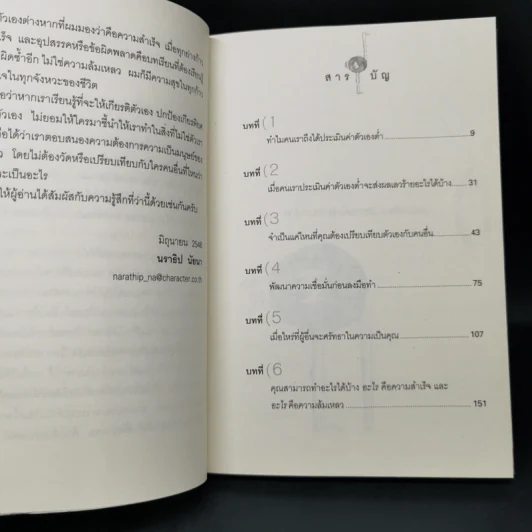 ตัวเองต่างหากที่ผมมองว่าคือความสำเร็จ เมื่อทุกย่างก้าว
เร็จ และอุปสรรคหรือข้อผิดพลาดคือบทเรียนที่ต้องเรียนรู้
ผิดซ้ำอีก ไม่ใช่ความล้มเหลว ผมก็มีความสุขในทุกก้าว
จในทุกจังหวะของชีวิต
อว่าหากเราเรียนรู้ที่จะให้เกียรติตัวเอง ปกป้องเกียรติยศ
ตัวเอง ไม่ยอมให้ใครมาชี้นำให้เราทำในสิ่งที่ไม่ใช่ตัวเรา
ถือได้ว่าเราตอบสนองความต้องการความเป็นมนุษย์ของ
โดยไม่ต้องวัดหรือเปรียบเทียบกับใครคนอื่นที่ไหนว่า
ละเป็นอะไร
ให้ผู้อ่านได้สัมผัสกับความรู้สึกที่ว่านี้ด้วยเช่นกันครับ
มิถุนายน 2548
นราธิป นัยนา
narathip_na@character.co.th
สารบัญ
บทที่ (1
ทำไมคนเราถึงได้ประเมินค่าตัวเองต่ำ 9
บทที่ (2
เมื่อคนเราประเมินค่าตัวเองต่ำจะส่งผลเลวร้ายอะไรได้บ้าง 31
บทที่ (3
จำเป็นแค่ไหนที่คุณต้องเปรียบเทียบตัวเองกับคนอื่น 43
บทที่ (4
พัฒนาความเชื่อมั่นก่อนลงมือทำ 75
บทที่ (5
เมื่อไหร่ที่ผู้อื่นจะศรัทธาในความเป็นคุณ 107
บทที่ (6
คุณสามารถทำอะไรได้บ้าง อะไร คือความสำเร็จ และ
อะไร คือความล้มเหลว 151